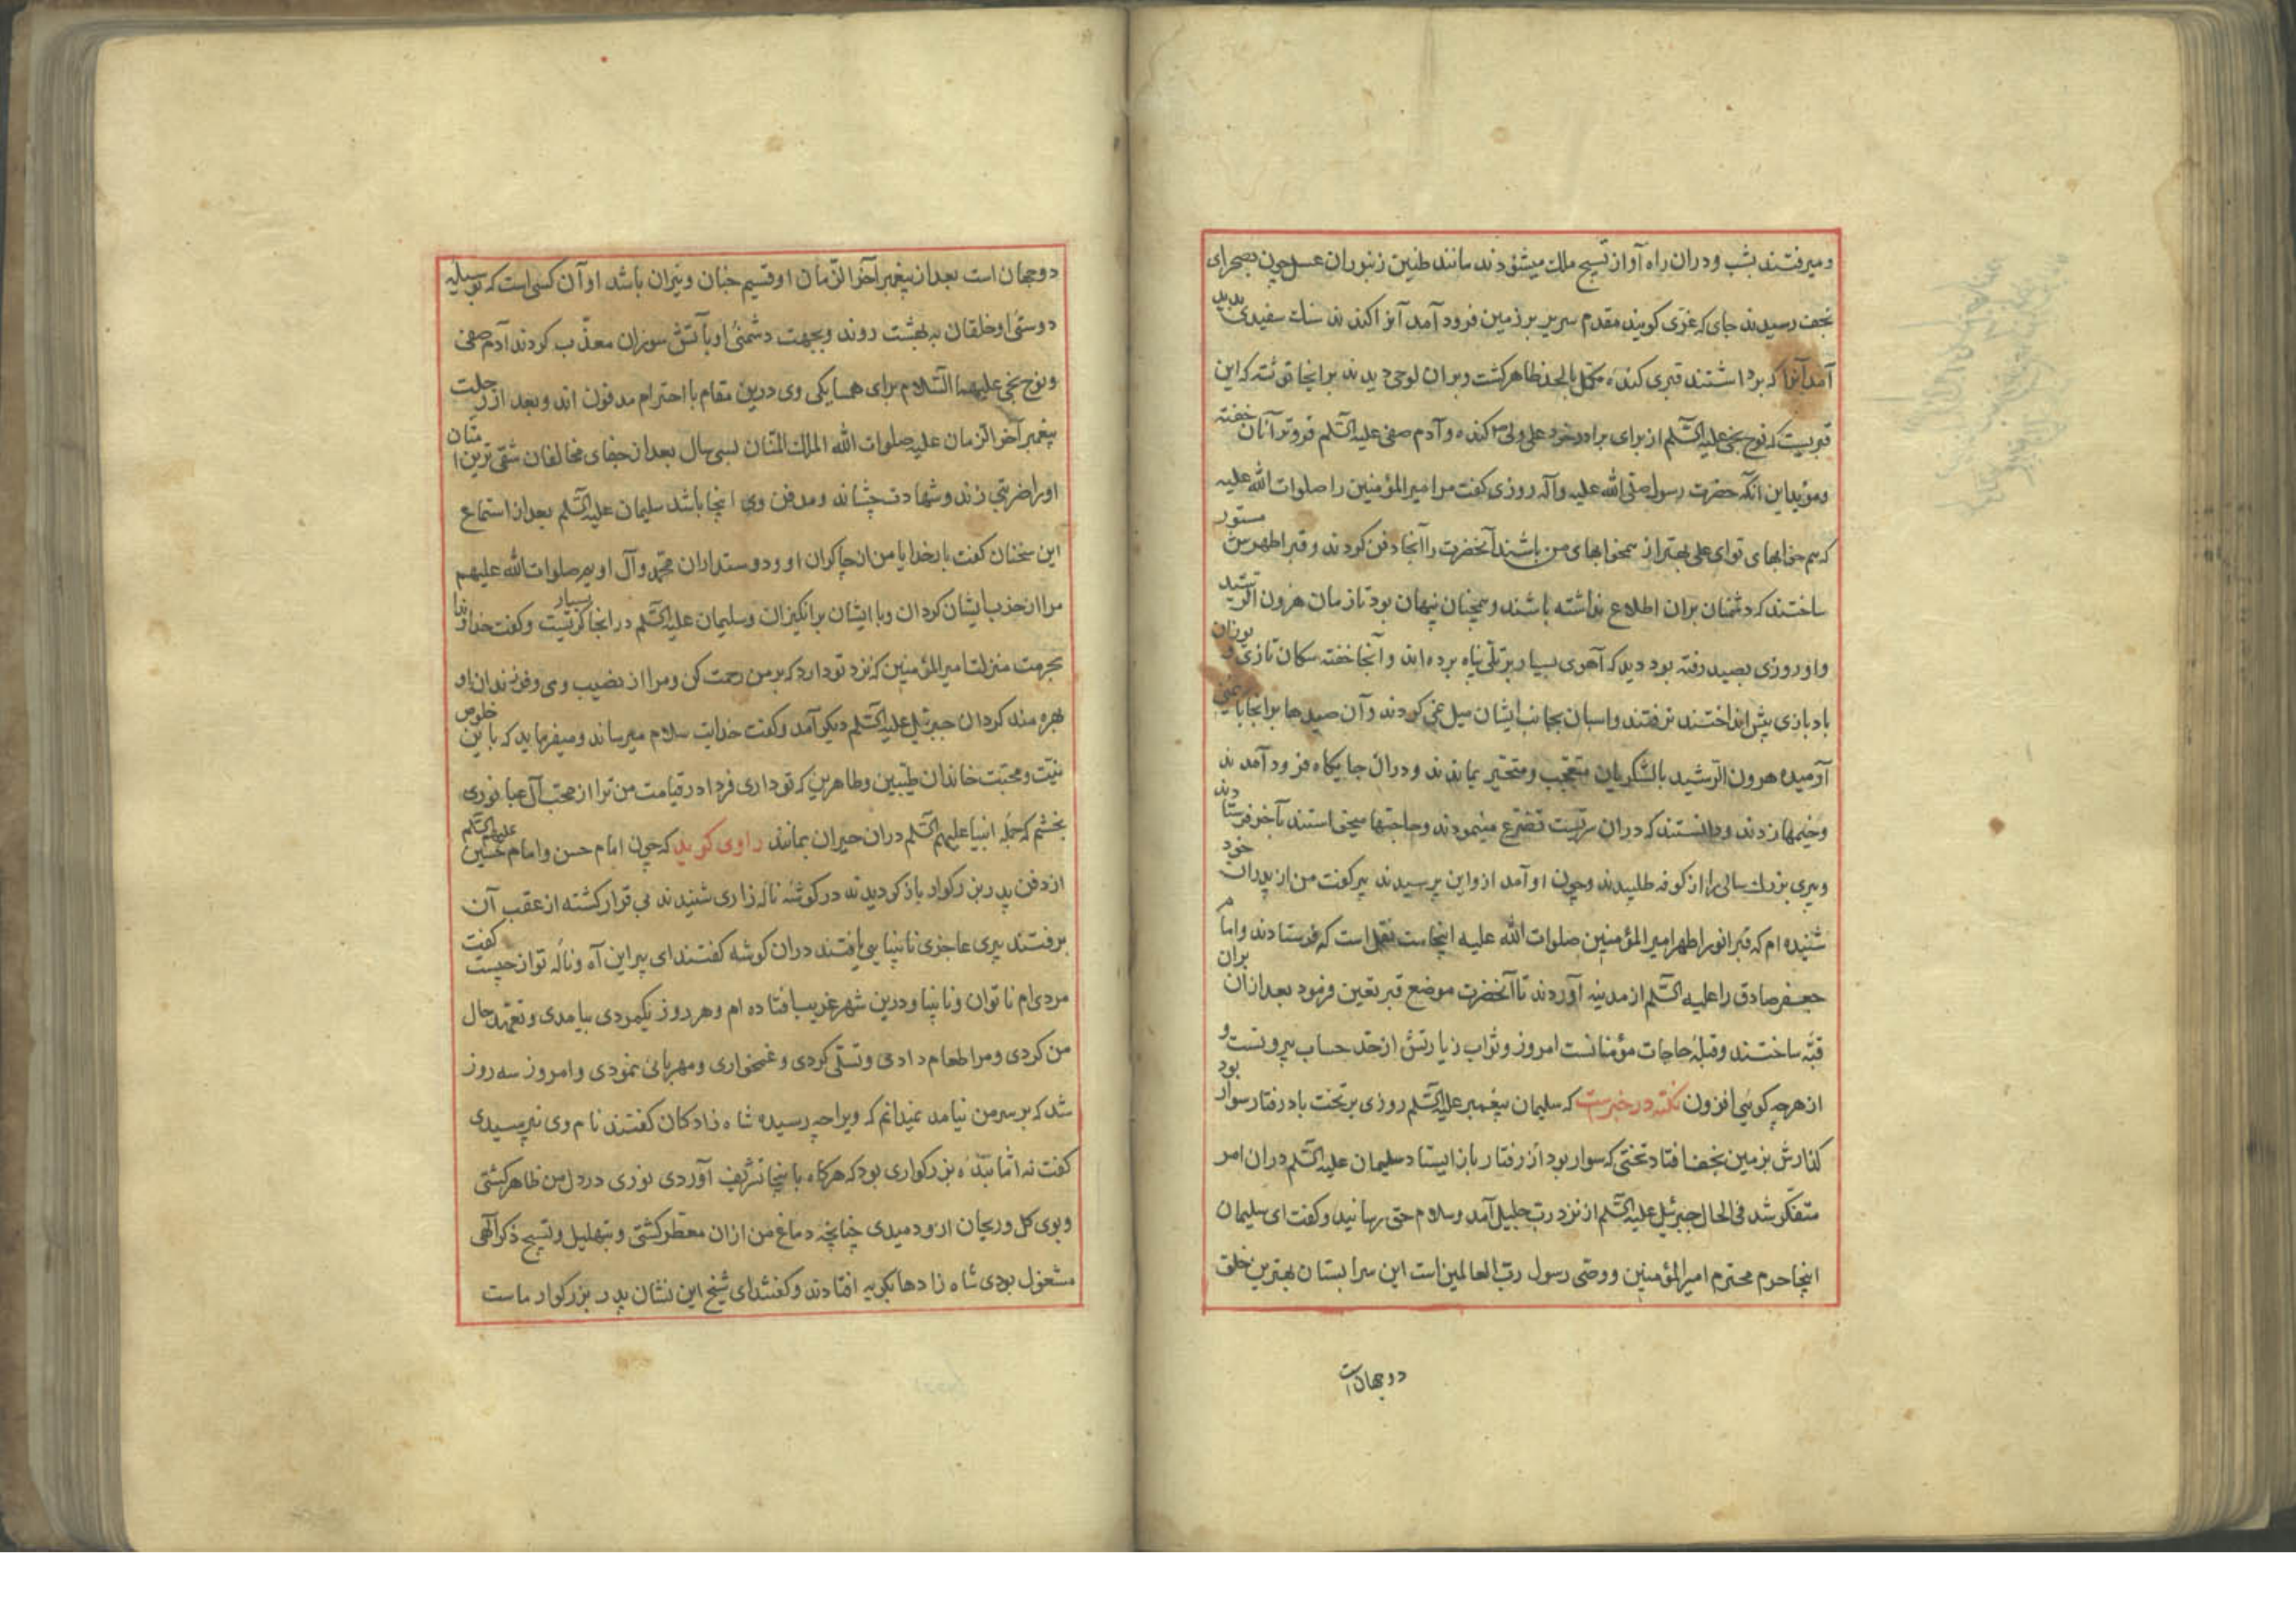 ومیرفتند بشب ودران راه آواز تسبیح ملک میشنودند مانند طنین زنبوران عسل چون بصحرای
نجف رسیدند جای که غری کویند مقدم سریر بر زمین فرود آمد آنرا کندند سنک سفیدی پدید
آمد آنرا که برداشتند قبری کنده مکمل بالحد ظاهر کشت وبران لوحی دیدند برانجا نوشته که این
قبریست که نوح نجی علیه السلم از برای برادر خود علی ولی کنده وآدم صفی علیه السلم فروتر ازان خفته
ومؤید این انکه حضرت رسول صلی الله علیه وآله روزی کفت مر امیرالمؤمنین را صلوات الله علیه
که هم خوابهای تو ای علی بهتر از همخوابهای من باشند آنحضرت را آنجا دفن کردند وقبر اطهرش مستور
ساختند که دشمنان بران اطلاع نداشته باشند وهمچنان پنهان بود تا زمان هرون الرشید
واو روزی بصید رفته بود دید که آهوی بسیار برتلی پناه برده اند وآنجا خفته سکان تازی و یوزان
بادبازی پیش انداختند نرفتند واسبان بجانب ایشان میل نمی کردند وآن صیدها برانجا بایمنی
آرمیده هرون الرشید بالشکریان متعجب ومتحیر بماندند ودران جایکاه فرود آمدند
وخیمها زدند ودانستند که دران سریست تضرع مینمودند وحاجتها میخواستند تا آخر فرستادند
وپیری بزرک سالی را از کوفه طلبیدند وچون او آمد ازو این پرسیدند پیر کفت من از پدران خود
شنیده ام که قبر انور اطهر امیرالمؤمنین صلوات الله علیه اینجاست نقل است که فرستادند وامام
جعفر صادق را علیه السلم از مدینه آوردند تا آنحضرت موضع قبر تعین فرمود بعد ازان بران
قبه ساختند وقبله حاجات مؤمنانست امروز وثواب زیارتش از حد حساب بیرونست و
از هرچه کوئی افزون نکته در خبرست که سلیمان پیغمبر علیه السلم روزی بر تخت باد رفتار سوار بود
کذارش بزمین نجف افتاد تختی که سوار بود از رفتار باز ایستاد سلیمان علیه السلم دران امر
متفکر شد فی الحال جبرئیل علیه السلم از نزد رب جلیل آمد وسلام حق رسانید وکفت ای سلیمان
اینجا حرم محترم امیرالمؤمنین ووصی رسول رب العالمین است این سرابستان بهترین خلق
دوجهان است
دوجهان است بعد از پیغمبر آخر الزمان او قسیم جنان ونیران باشد او آن کسی است که بوسیله
دوستی او خلقان به بهشت روند وبجهت دشمنی او بآتش سوزان معذب کردند آدم صفی
ونوح نجی علیهما السلام برای همسایکی وی درین مقام با احترام مدفون اند وبعد از رحلت
پیغمبر آخر الزمان علیه صلوات الله الملک المنان بسی سال بعد از جفای مخالفان شقی ترین امتان
اورا ضربتی زند وشهادت چشاند ومدفن وی اینجا باشد سلیمان علیه السلم بعد از استماع
این سخنان کفت بار خدایا من از چاکران او ودوستداران محمد وآل اویم صلوات الله علیهم
مرا از حزب ایشان کردان وبا ایشان برانکیزان وسلیمان علیه السلم درانجا بسیار کریست وکفت خداوندا
بحرمت منزلت امیرالمؤمنین که نزد تو دارد که بر من رحمت کن ومرا از نصیب وی وفرزندان او
بهره مند کردان جبرئیل علیه السلم دیکر آمد وکفت خدایت سلام میرساند ومیفرماید که باین خلوص
نیت ومحبت خاندان طیبین وطاهرین که تو داری فردا در قیامت من ترا از محبت آل عبا نوری
بخشم که جمله انبیا علیهم السلم دران حیران بمانند راوی کوید که چون امام حسن وامام حسین علیهما السلم
از دفن پدر بزرکوار باز کردیدند در کوشه ناله زاری شنیدند بی قرار کشته از عقب آن
برفتند پیری عاجزی نابینایی یافتند دران کوشه کفتند ای پیر این آه وناله تو از چیست کفت
مردی ام ناتوان ونابینا ودرین شهر غریب افتاده ام وهر روز یکمردی بیامدی وتعهد حال
من کردی ومرا طعام دادی وتسلی کردی وغمخواری ومهربانی نمودی وامروز سه روز
شد که بر سر من نیامد نمیدانم که ویرا چه رسیده شاه زادکان کفتند نام وی نپرسیدی
کفت نه اما بنده بزرکواری بود که هرکاه باینجا تشریف آوردی نوری در دل من ظاهر کشتی
وبوی کل وریحان ازو دمیدی چنانچه دماغ من ازان معطر کشتی وبتهلیل وتسبیح ذکر الهی
مشغول بودی شاه زادها بکریه افتادند وکفتند ای شیخ این نشان پدر بزرکوار ماست